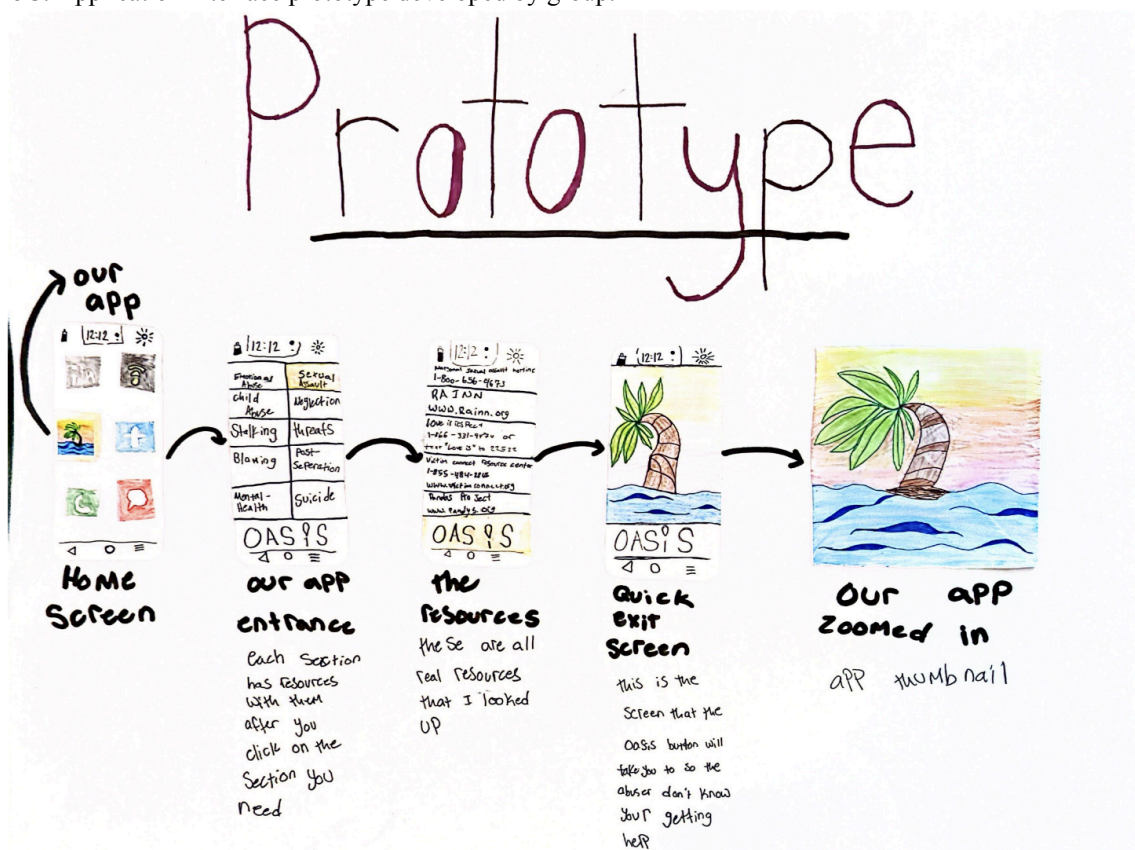 Application interface prototype developed by group.
Prototype
our
app
12:12
Home
Screen
12:12
Emotional
Abuse
Sexual
Assault
Child
Abuse
Neglection
Stalking
threats
Blaming
Post-
Seperation
Mental-
Health
Suicide
OASIS
our app
entrance
each Section
has resources
with them
after you
click on the
Section you
need
12:12
National Sexual assault hotline
1-800-656-4673
RAINN
www.Rainn.org
Love is respect
or
text "Love is" to 22522
Victim connect resource center
1-855-484-2846
www.victimconnect.org
Pandas Project
www.Pandys.org
OASIS
the
resources
these are all
real resources
that I looked
up
12:12
OASiS
Quick
exit
Screen
this is the
Screen that the
Oasis button will
take you to so the
abuser don't know
your getting
help
Our app
zoomed in
app thumbnail